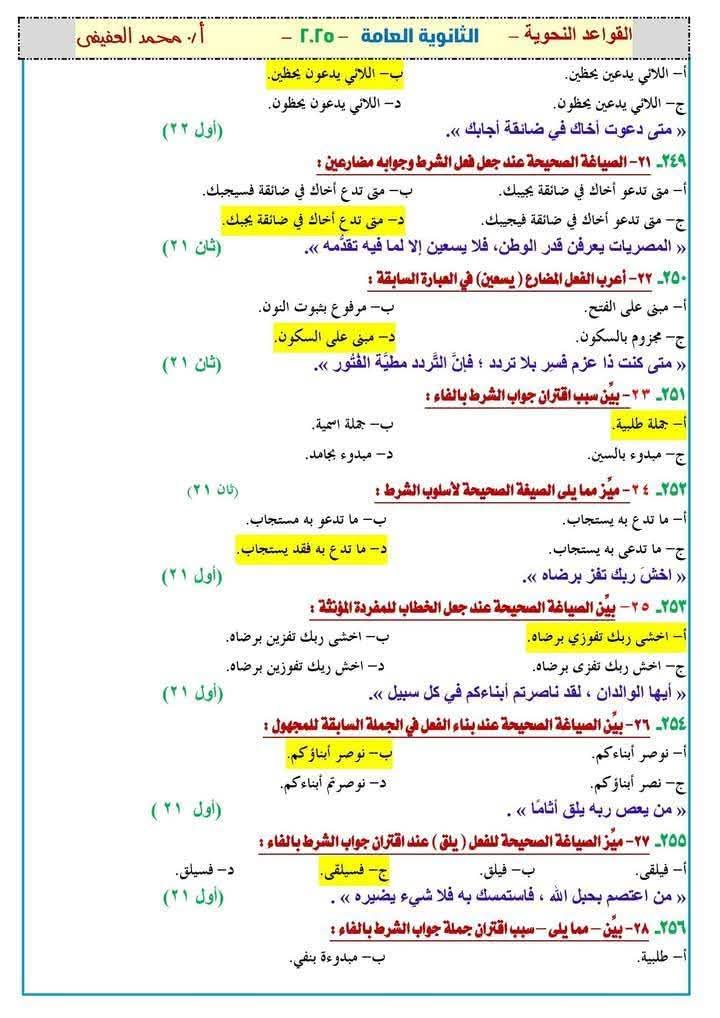 القواعد النحوية – الثانوية العامة – ٢٠٢٥ – أ/٠ محمد العفيفى
أ– اللائي يدعين يحظين. ب– اللائي يدعون يحظين.
ج– اللائي يدعين يحظون. د– اللائي يدعون يحظون.
« متى دعوت أخاك في ضائقة أجابك ». (أول ٢٢)
٢٤٩ـ ٢١– الصياغة الصحيحة عند جعل فعل الشرط وجوابه مضارعين :
أ– متى تدعو أخاك في ضائقة يجيبك. ب– متى تدع أخاك في ضائقة فسيجبك.
ج– متى تدعو أخاك في ضائقة فيجيبك. د– متى تدع أخاك في ضائقة يجبك.
« المصريات يعرفن قدر الوطن، فلا يسعين إلا لما فيه تقدُّمه ». (ثان ٢١)
٢٥٠ـ ٢٢– أعرب الفعل المضارع ( يسعين) في العبارة السابقة :
أ– مبنى على الفتح. ب– مرفوع بثبوت النون.
ج– مجزوم بالسكون. د– مبنى على السكون.
« متى كنت ذا عزم فسِر بلا تردد ؛ فإنَّ التَّردد مطيَّة الفُتُور ». (ثان ٢١)
٢٥١ـ ٢٣– بيِّن سبب اقتران جواب الشرط بالفاء :
أ– جملة طلبية. ب– جملة اسمية.
ج– مبدوء بالسين. د– مبدوء بجامد.
٢٥٢ـ ٢٤– ميِّز مما يلى الصيغة الصحيحة لأسلوب الشرط : (ثان ٢١)
أ– ما تدع به يستجاب. ب– ما تدعو به مستجاب.
ج– ما تدعى به يستجاب. د– ما تدع به فقد يستجاب.
« اخشَ ربك تفز برضاه ». (أول ٢١)
٢٥٣ـ ٢٥– بيِّن الصياغة الصحيحة عند جعل الخطاب للمفردة المؤنثة :
أ– اخشى ربك تفوزي برضاه. ب– اخشى ربك تفزين برضاه.
ج– اخش ربك تفزى برضاه. د– اخش ربك تفوزين برضاه.
« أيها الوالدان ، لقد ناصرتم أبناءكم في كل سبيل ». (أول ٢١)
٢٥٤ـ ٢٦– بيِّن الصياغة الصحيحة عند بناء الفعل في الجملة السابقة للمجهول :
أ– نوصر أبناءكم. ب– نوصر أبناؤكم.
ج– نصر أبناؤكم. د– نوصرتم أبناءكم.
« من يعص ربه يلق أثامًا » . (أول ٢١ )
٢٥٥ـ ٢٧– ميِّز الصياغة الصحيحة للفعل ( يلق ) عند اقتران جواب الشرط بالفاء :
أ– فيلقى. ب– فيلق. ج– فسيلقى. د– فسيلق.
« من اعتصم بحبل الله ، فاستمسك به فلا شيء يضيره » . (أول ٢١)
٢٥٦ـ ٢٨– بيِّن – مما يلى – سبب اقتران جملة جواب الشرط بالفاء :
أ– طلبية. ب– مبدوءة بنفي.